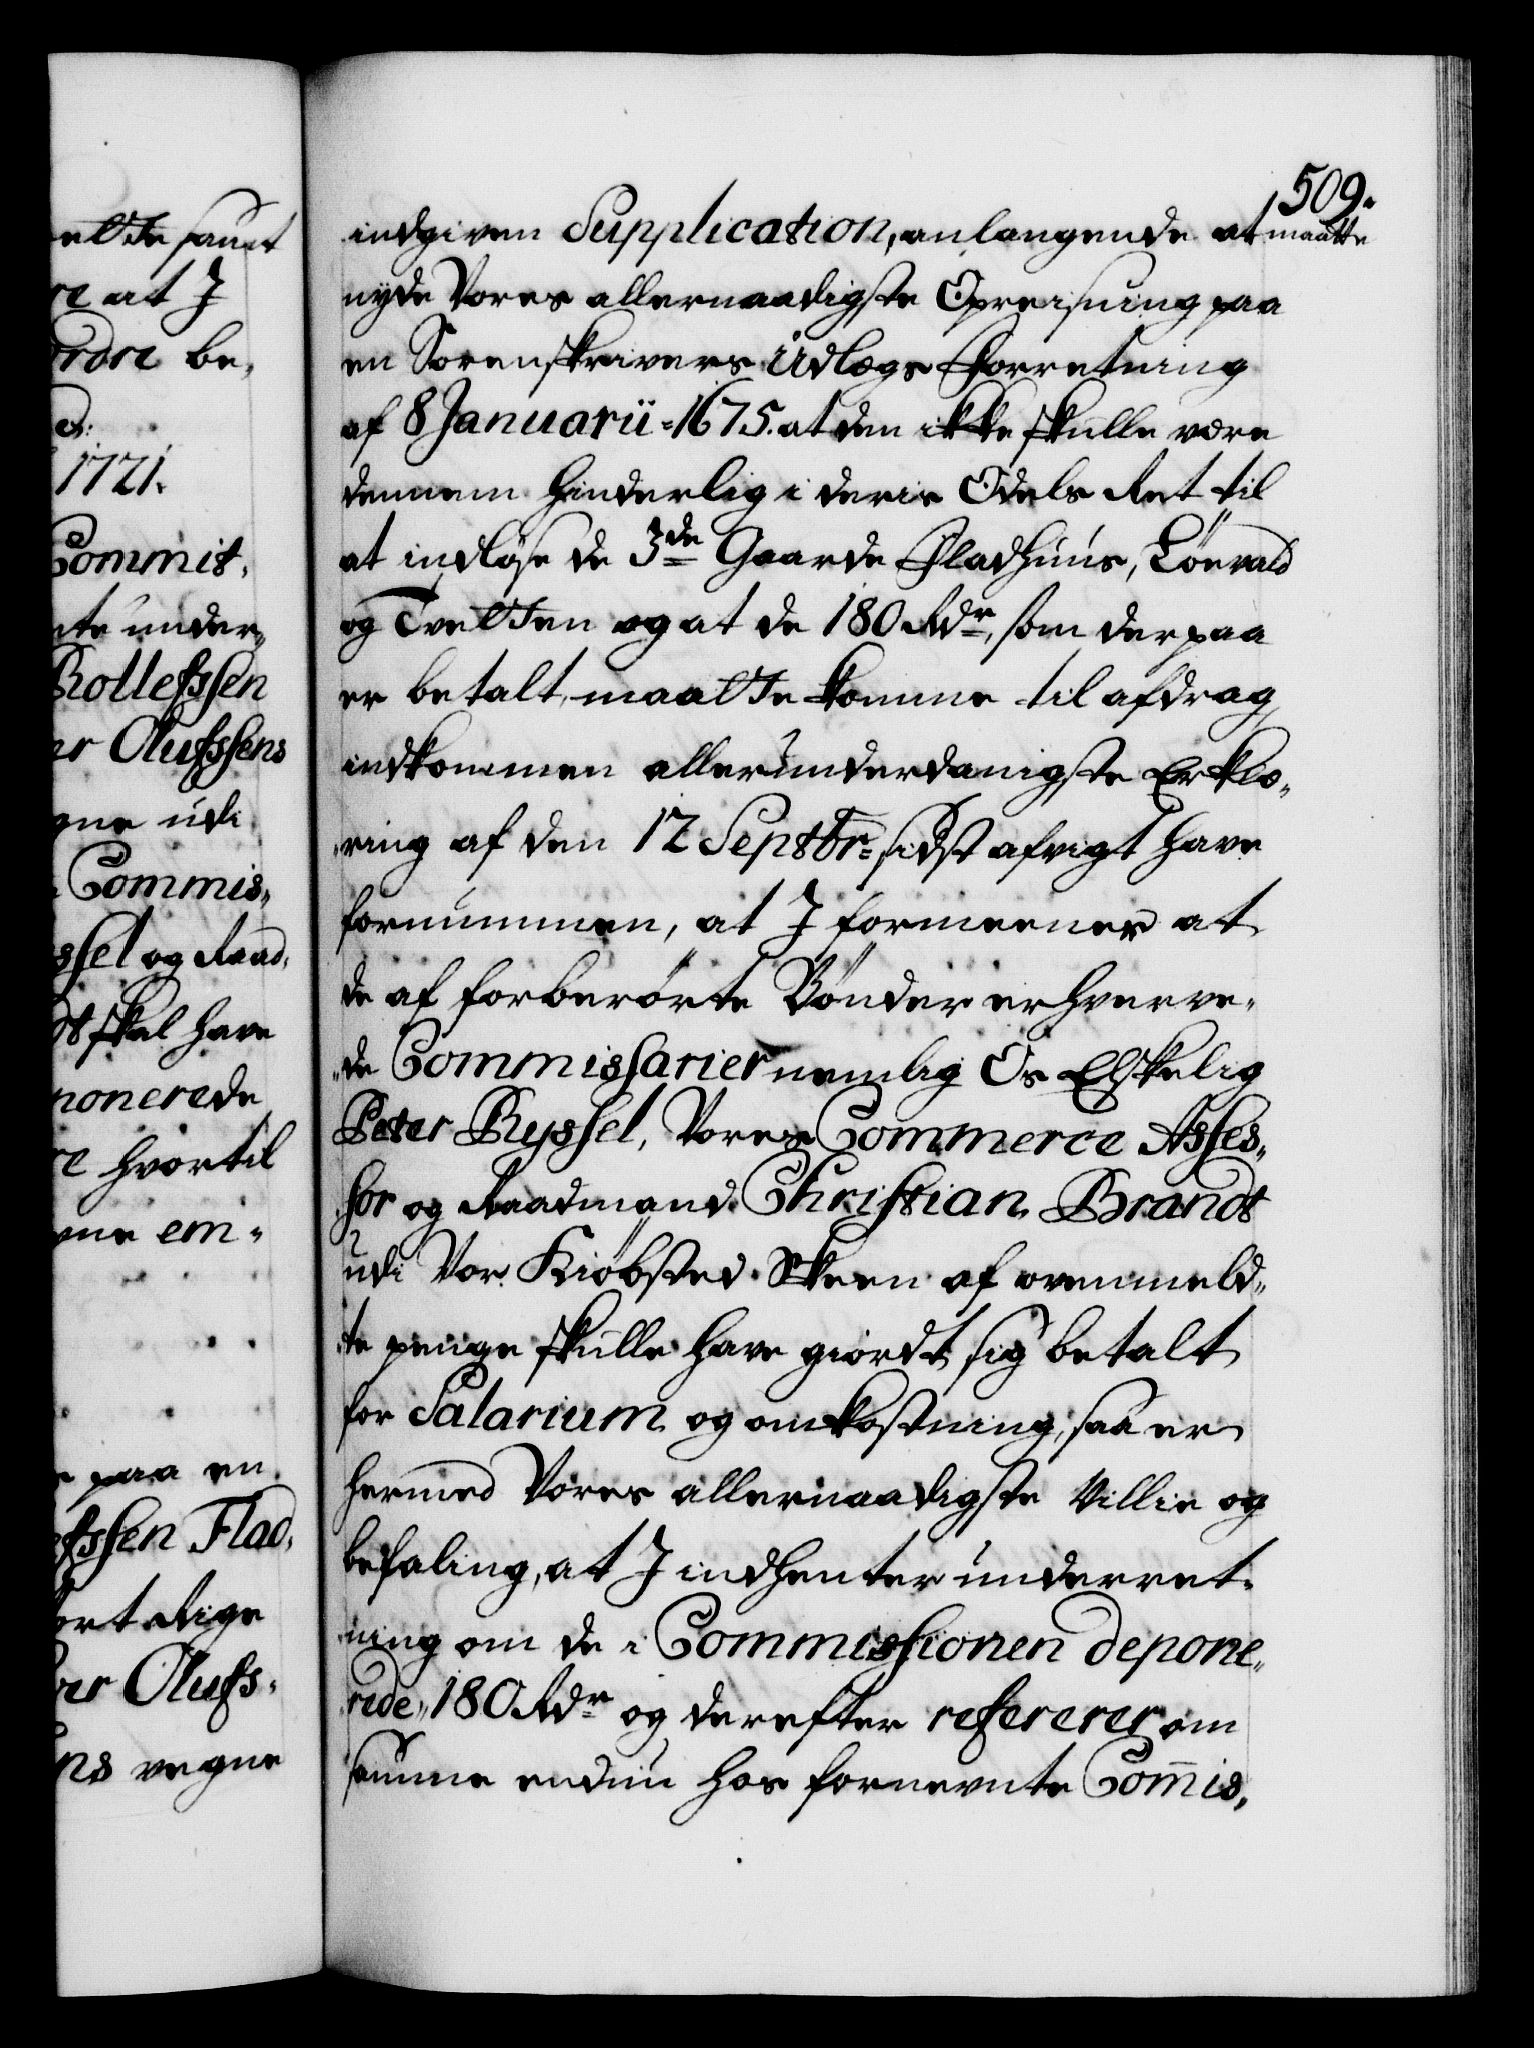 509.
elte samt
re at I
ordre be,
1721.
Commit,
nte under,
Rollefssen
er Olufssens
gne udi
Commis,
ssel og Raad,
dt skal have
nonerede
re hvortil
gne em,
paa en
fssen Flad,
ort Rige
er Olufs,
ns vegne
indgiven Supplication, anlangende at maatte
nyde Vores allernaadigste Opreisning paa
en Sorenskrivers Udlægs Forretning
af 8 Januarii 1675. at den ikke skulle være
dennem hinderlig i deris Odels Ret til
at indløse de 3de Gaarde Fladhuus, Lönvald
og Tvetten og at de 180 Rdr, som derpaa
er betalt, maatte komme til afdrag,
indkommen allerunderdanigste Erklæ,
ring af den 12 Septbr: sidst afvigt have
fornummen, at I formeener at
de af forberörte Bönder erhverve,
de Commissarier nemlig Os Elskelig
Peter Ryssel, Vores Commerce Asses,
sor og Raadmand Christian Brandt
udi Vor Kiöbsted Skeen af ovenmeld,
te penge skulle have giordt sig betalt
for Salarium og omkostning, saa er
hermed Vores allernaadigste Villie og
befaling, at I indhenter underret,
ning om de i Commissionen depone,
rede, 180 Rdr og derefter refererer om
samme endnu hos fornevnte Com̅is,